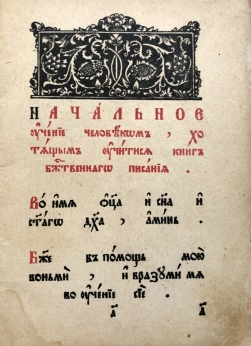 НАЧА́ЛЬНОЕ
ᲂу҆че́нїе человѣ́кѡмъ , хо
тѧ́щымъ ᲂу҆чи́тисѧ книгъ
бж҃е́ственнагѡ писа́нїѧ .
Во и҆́мѧ ѻ҆ц҃а̀ и҆ сн҃а и҆
ст҃а́гѡ дх҃а , а҆ми́нь .
Бж҃е въ по́мощь мою̀
вонмѝ , и҆ вразꙋми́ мѧ
во ᲂу҆че́нїе сїѐ .
а҃ а҃